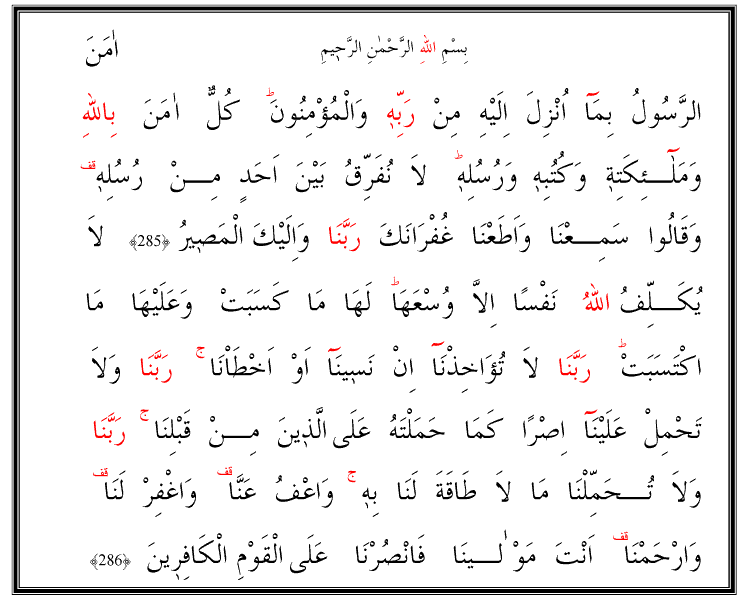 بِسْمِ اللهِ الرَّحْمٰنِ الرَّحٖيمِ اٰمَنَ
الرَّسُولُ بِمَٓا اُنْزِلَ اِلَيْهِ مِنْ رَبِّهٖ وَالْمُؤْمِنُونَۜ كُلٌّ اٰمَنَ بِاللهِ
وَمَلٰٓئِكَتِهٖ وَكُتُبِهٖ وَرُسُلِهٖۜ لاَ نُفَرِّقُ بَيْنَ اَحَدٍ مِنْ رُسُلِهٖ قف
وَقَالُوا سَمِعْنَا وَاَطَعْنَا غُفْرَانَكَ رَبَّنَا وَاِلَيْكَ الْمَصٖيرُ ﴿285﴾ لاَ
يُكَلِّفُ اللهُ نَفْسًا اِلاَّ وُسْعَهَاۜ لَهَا مَا كَسَبَتْ وَعَلَيْهَا مَا
اكْتَسَبَتْۜ رَبَّنَا لاَ تُؤَاخِذْنَٓا اِنْ نَسٖينَٓا اَوْ اَخْطَاْنَاۚ رَبَّنَا وَلاَ
تَحْمِلْ عَلَيْنَٓا اِصْرًا كَمَا حَمَلْتَهُ عَلَى الَّذٖينَ مِنْ قَبْلِنَاۚ رَبَّنَا
وَلاَ تُحَمِّلْنَا مَا لاَ طَاقَةَ لَنَا بِهٖۚ وَاعْفُ عَنَّا قف وَاغْفِرْ لَنَا قف
وَارْحَمْنَا قف اَنْتَ مَوْلٰينَا فَانْصُرْنَا عَلَى الْقَوْمِ الْكَافِرٖينَ ﴿286﴾